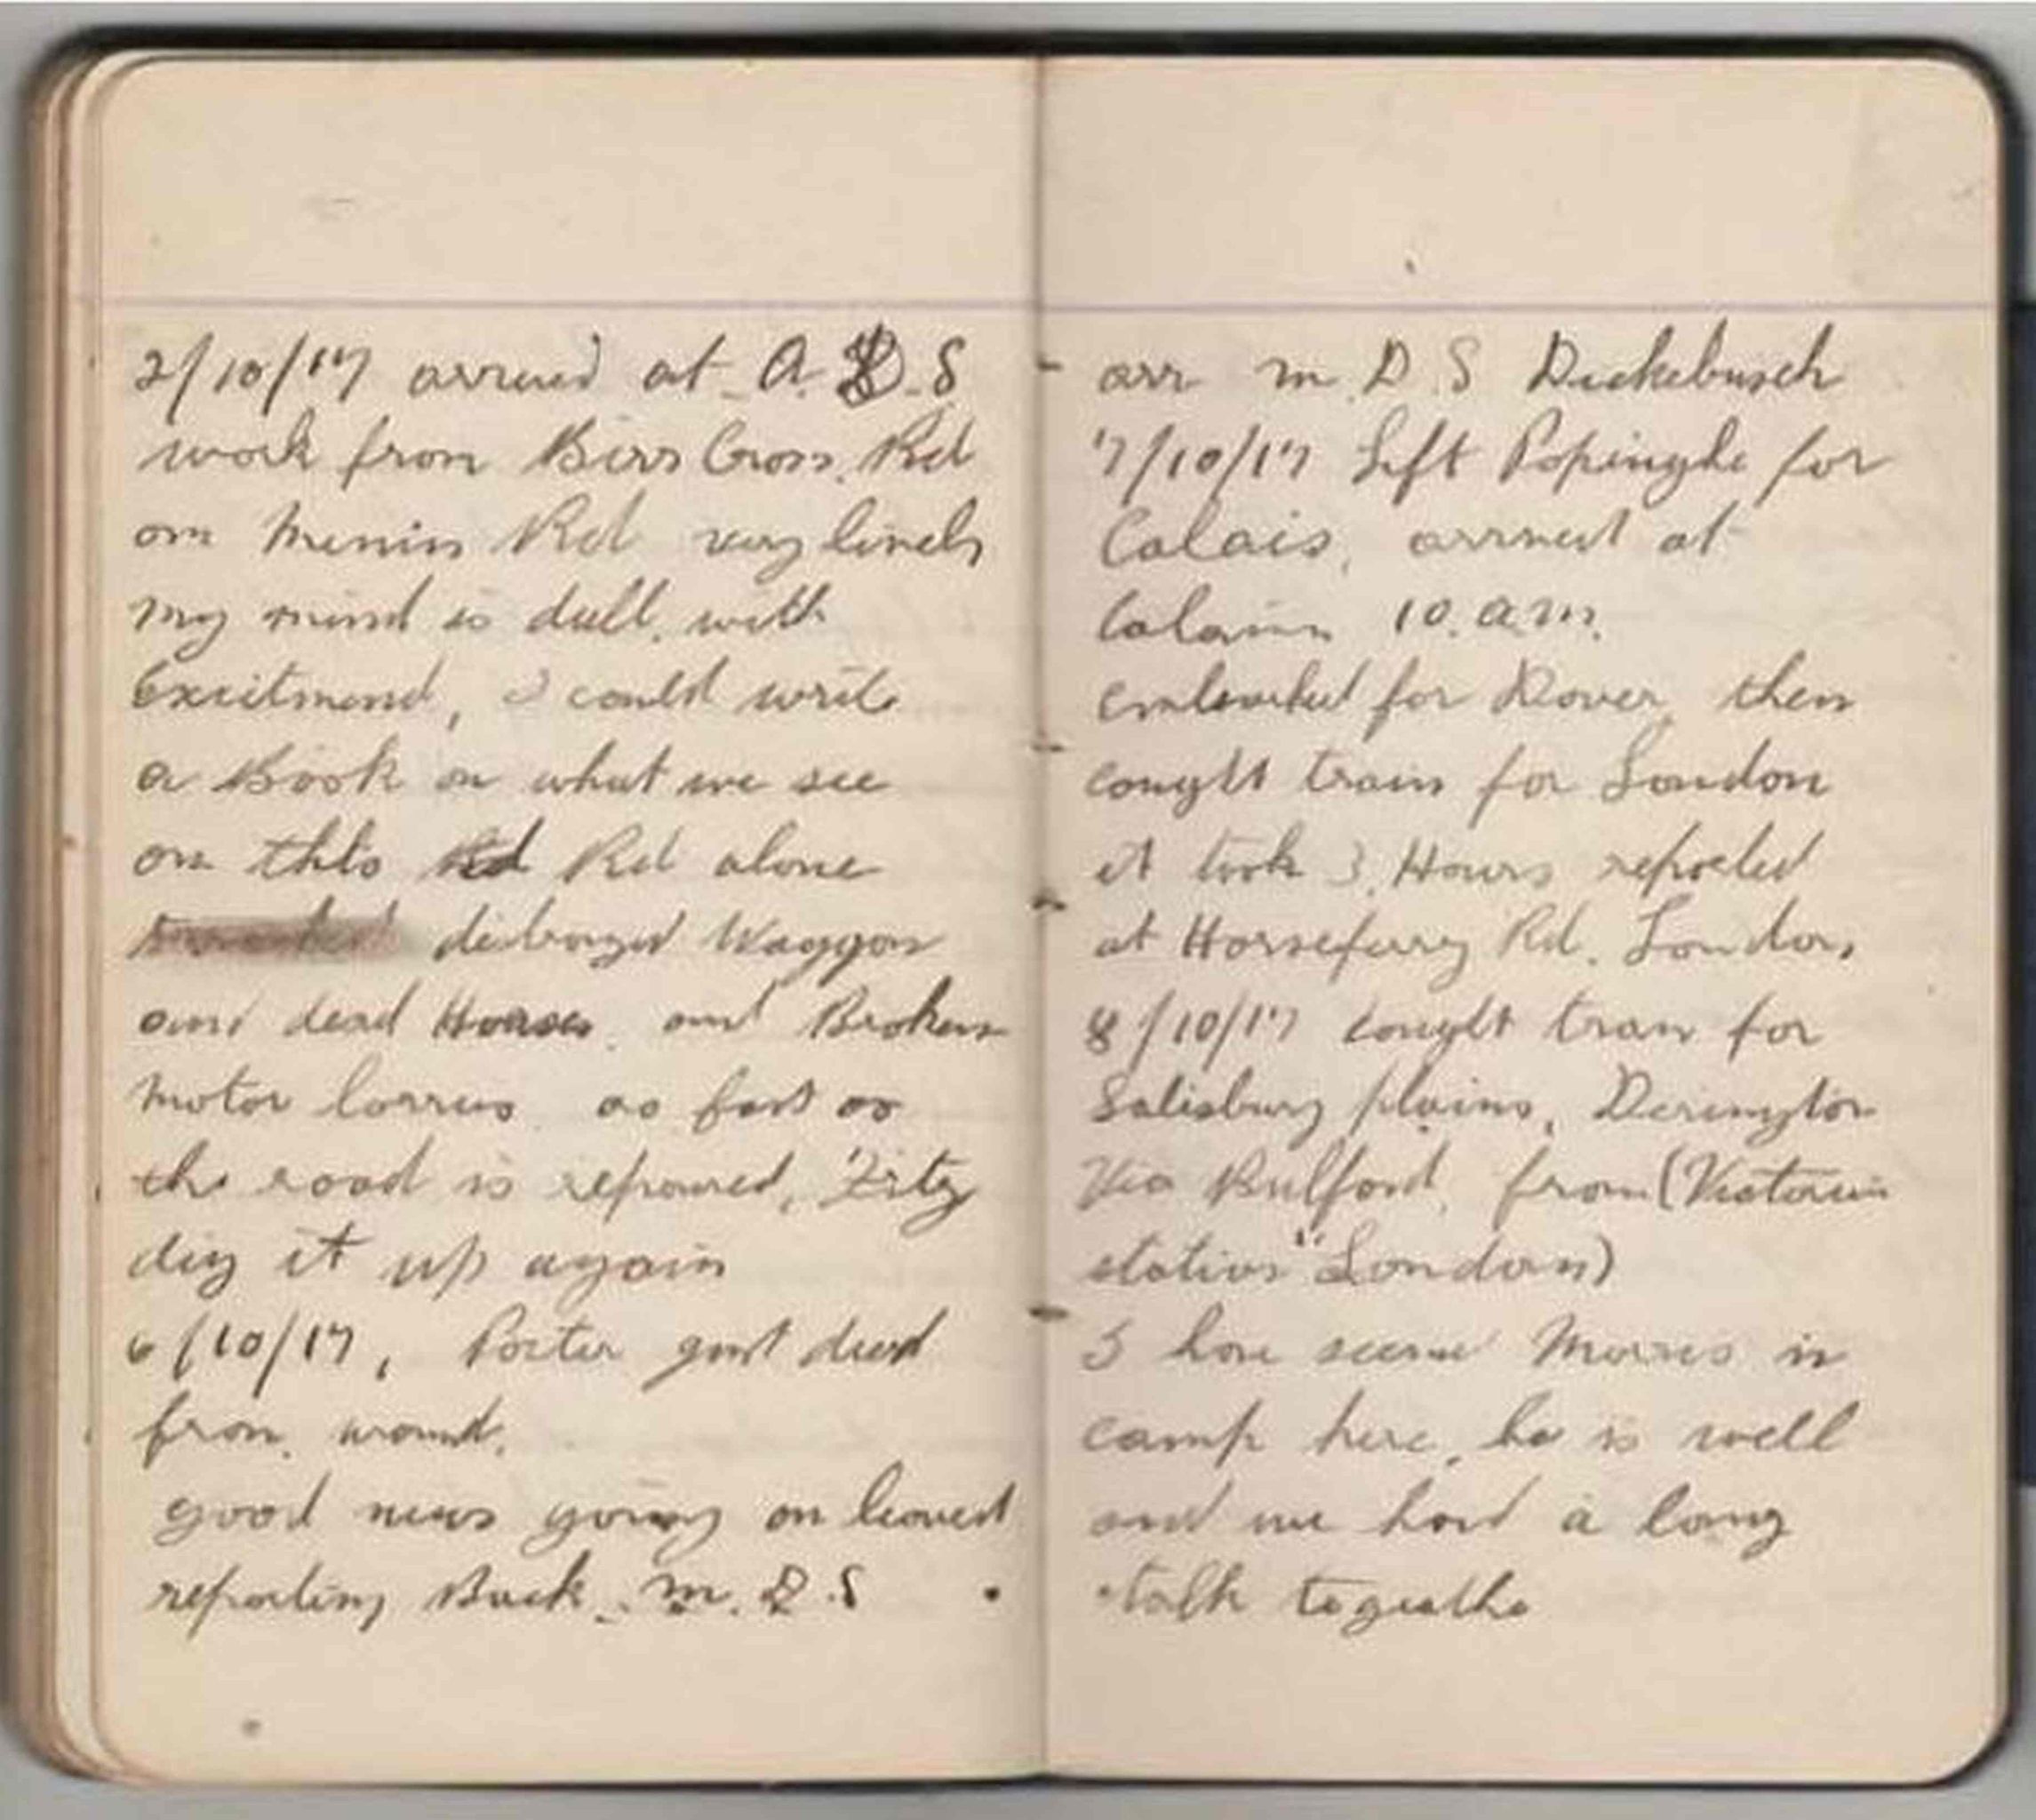 2/10/17 arrived at A.D.S
work from Birr Cross. Rd
on Menin Rd very lively
my mind is dull. with
Excitmend, I could write
a Book on what we see
on this Rd alone
distroyed Waggon
and dead Horses. and Broken
motor lorries as fast as
the road is repaired, Fritz
dig it up again
6/10/17, Porter just died
from. wound.
good news going on leaved
reporting Back. M.D.S
arr M.D.S Dickebusch
7/10/17 Left Popinghe for
Calais, arrived at
Calais 10.a.m.
embarked for Dover then
cought train for London
it took 3. Hours reported
at Horseferry Rd. London,
8/10/17 cought train for
Salisbury plains, Derington
Via Bulford, from (Victoria
station" London)
I have seene Morris in
camp here, he is well
and we had a long
talk togeathe